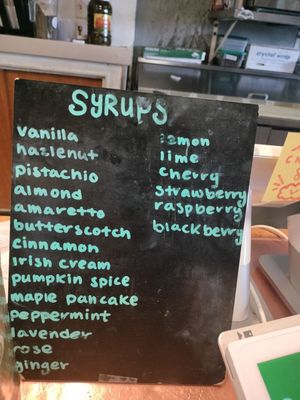 SYRUPS
vanilla
hazlenut
pistachio
almond
amaretto
butterscotch
cinnamon
irish cream
pumpkin spice
maple pancake
peppermint
lavender
rose
ginger
lemon
lime
cherry
strawberry
raspberry
blackberry